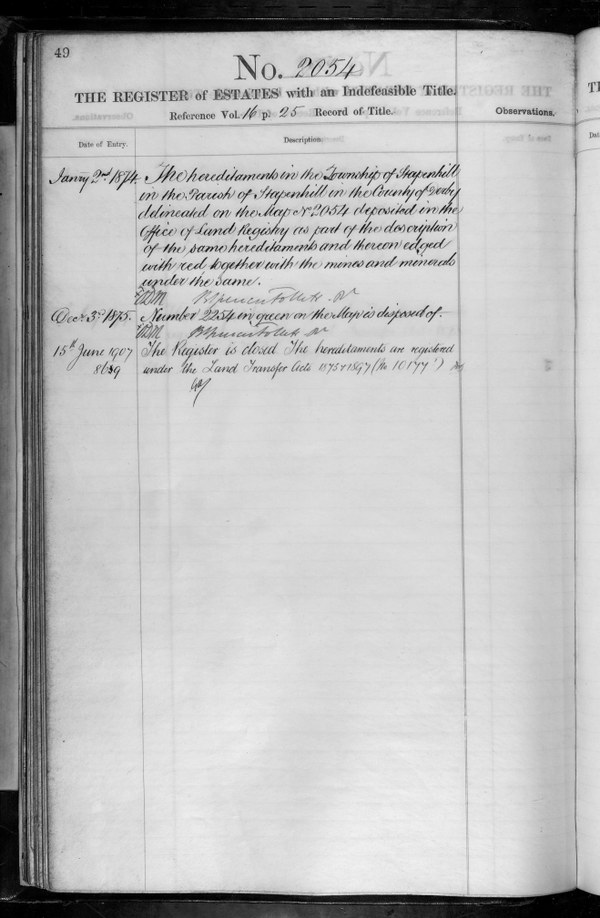 49
No. 2054
THE REGISTER of ESTATES with an Indefeasible Title.
Reference Vol. 16 p. 25 Record of Title.
Observations.
Date of Entry.
Description.
Janry 2nd 1874. The hereditaments in the Township of Stapenhill
in the Parish of Stapenhill in the County of Derby
delineated on the Map No 2054 deposited in the
Office of Land Registry as part of the description
of the same hereditaments and thereon edged
with red together with the mines and minerals
under the same.
Decr 3rd 1875. Number 2254 in green on the Map is disposed of.
15th June 1907 The Register is closed The hereditaments are registered
8689 under the Land Transfer Acts 1875 & 1897 (No 10177)